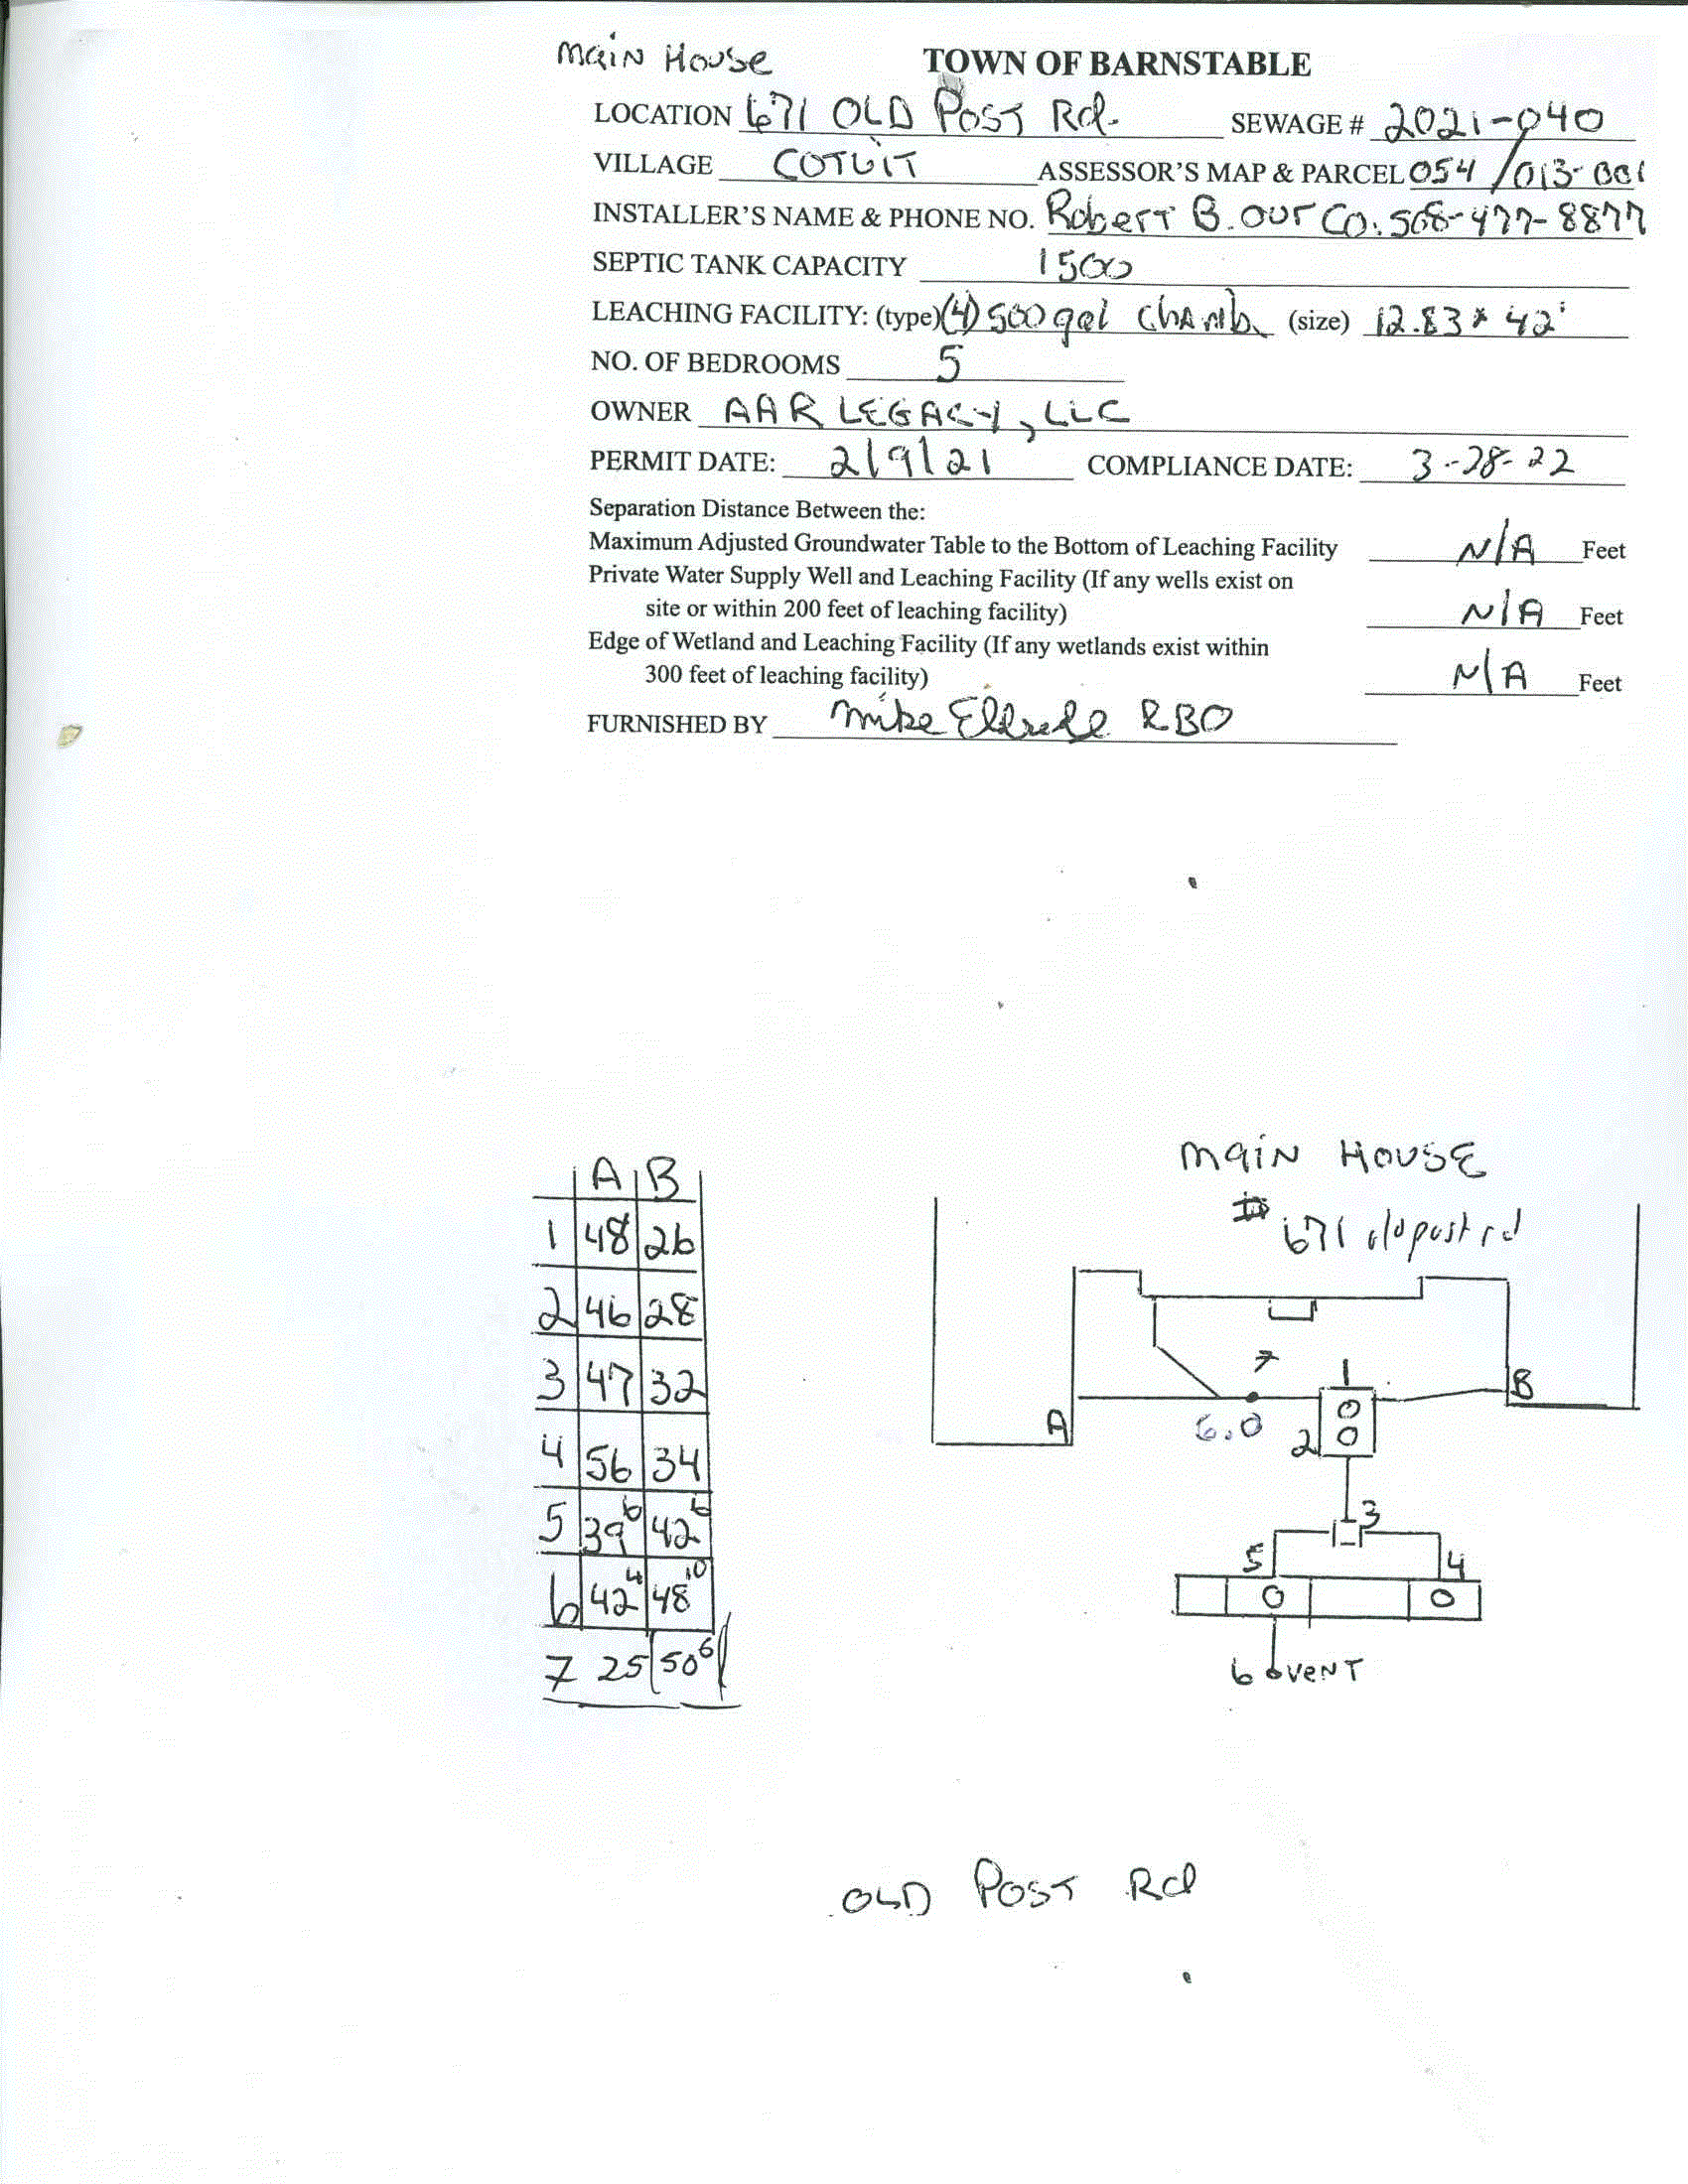 Main House
TOWN OF BARNSTABLE
LOCATION 671 OLD Post Rd. SEWAGE # 2021-040
VILLAGE COTUIT ASSESSOR'S MAP & PARCEL 054/013-001
INSTALLER'S NAME & PHONE NO. Robert B. Our Co. 508-477-8877
SEPTIC TANK CAPACITY 1500
LEACHING FACILITY: (type) (4) 500 gal Chamb. (size) 12.83 * 42'
NO. OF BEDROOMS 5
OWNER AAR LEGACY, LLC
PERMIT DATE: 2/9/21 COMPLIANCE DATE: 3-28-22
Separation Distance Between the:
Maximum Adjusted Groundwater Table to the Bottom of Leaching Facility N/A Feet
Private Water Supply Well and Leaching Facility (If any wells exist on
site or within 200 feet of leaching facility) N/A Feet
Edge of Wetland and Leaching Facility (If any wetlands exist within
300 feet of leaching facility) N/A Feet
FURNISHED BY Mike RBO
A B
1 48 26
2 46 28
3 47 32
4 56 34
5 39 6 42 6
6 42 4 48 10
7 25 50 6
Main House
# 671 old post rd
7
1
B
A
6.0
2
3
5
4
6 VENT
OLD Post Rd